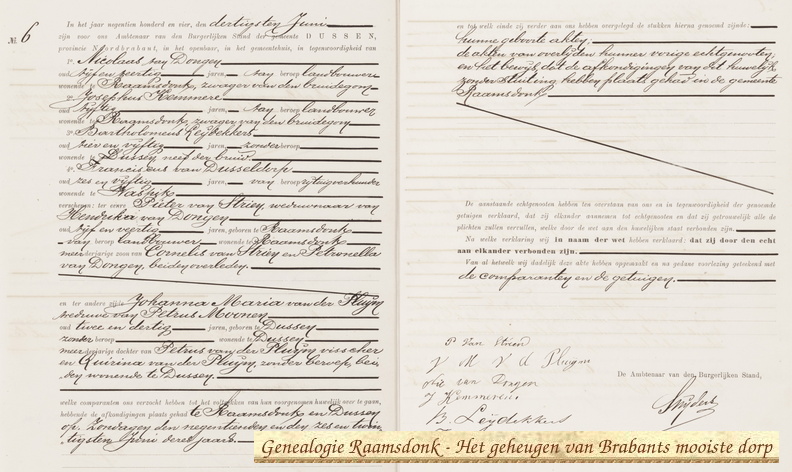 №. 6
In het jaar negentien honderd en vier, den dertigsten Juni
zijn voor ons Ambtenaar van den Burgerlijken Stand der gemeente DUSSEN,
provincie Noordbrabant, in het openbaar, in het gemeentehuis, in tegenwoordigheid van
1º. Nicolaas van Dongen
oud vijf en veertig jaren, van beroep landbouwer
wonende te Raamsdonk, zwager van den bruidegom
2º. Josephus Kemmeren
oud vijftig jaren, van beroep landbouwer
wonende te Raamsdonk, zwager van den bruidegom
3º. Bartholomeus Leijdekkers
oud vier en vijftig jaren, zonder beroep
wonende te Dussen neef der bruid
4º. Franciscus van Dusseldorp
oud zes en vijftig jaren, van beroep rijtuigverhuurder
wonende te Waspijk
verschenen: ter eenre Pieter van Strien, weduwnaar van
Hendrika van Dongen
oud vijf en veertig jaren, geboren te Raamsdonk
van beroep landbouwer wonende te Raamsdonk
meerderjarige zoon van Cornelis van Strien en Petronella
van Dongen, beiden overleden.
en ter andere zijde Johanna Maria van der Pluijm
weduwe van Petrus Moonen
oud twee en dertig jaren, geboren te Dussen
zonder beroep wonende te Dussen
meerderjarige dochter van Petrus van der Pluijm visscher
en Quirina van der Pluijm, zonder beroep, bei
den wonende te Dussen.
welke comparanten ons verzocht hebben tot het voltrekken van hun voorgenomen huwelijk over te gaan,
hebbende de afkondigingen plaats gehad te Raamsdonk en Dussen
op Zondagen den negentienden en den zes en twin
tigsten Juni dezes jaars.
en tot welk einde zij verder aan ons hebben overgelegd de stukken hierna genoemd zijnde:
hunne geboorte akten;
de akten van overlijden hunner vorige echtgenooten
en het bewijs dat de afkondigingen van dit huwelijk
zonder stuiting hebben plaats gehad in de gemeente
Raamsdonk
De aanstaande echtgenooten hebben ten overstaan van ons en in tegenwoordigheid der genoemde
getuigen verklaard, dat zij elkander aannemen tot echtgenooten en dat zij getrouwelijk alle de
plichten zullen vervullen, welke door de wet aan den huwelijken staat verbonden zijn.
Na welke verklaring wij in naam der wet hebben verklaard: dat zij door den echt
aan elkander verbonden zijn.
Van al hetwelk wij dadelijk deze akte hebben opgemaakt en na gedane voorlezing geteekend met
de comparanten en de getuigen.
P van Strien
J M V d Pluijm
van Dongen
J Kemmeren
B. Leijdekkers
De Ambtenaar van den Burgerlijken Stand,
Snijders
Genealogie Raamsdonk - Het geheugen van Brabants mooiste dorp